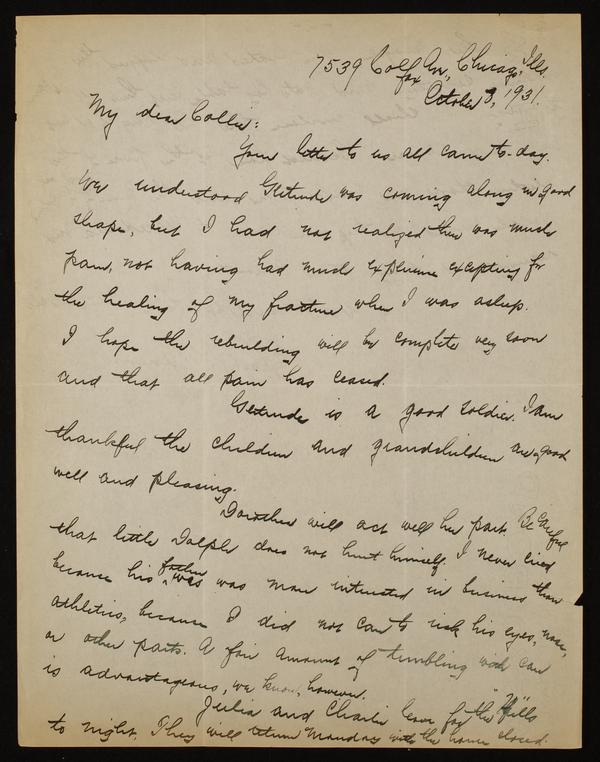 7539 Colfax Av., Chicago, Ills.
October 3, 1931.
My dear Collie:
Your letter to us all came to-day.
We understood Gertrude was coming along in good
shape, but I had not realized there was much
pain, not having had much experience excepting for
the healing of my fracture when I was asleep.
I hope the rebuilding will be complete very soon
and that all pain has ceased.
Gertrude is a good soldier. I am
thankful the children and grandchildren are good
well and pleasing.
Dorothea will act well her part. Be careful
that little Dolph does not hurt himself. I never cried
because his father was was more interested in business than
athletics, because I did not care to risk his eyes, nose,
or other parts. A fair amount of tumbling with care
is advantageous, we know, however.
Julia and Charlie leave for the "Hills"
to night. They will return Monday with the house closed.